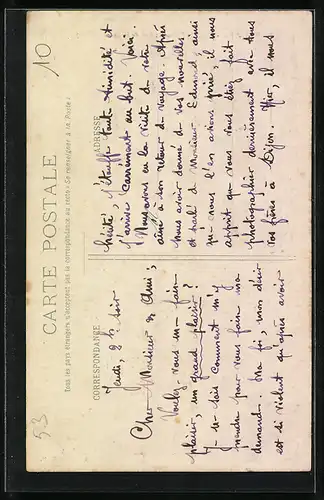 10
CARTE POSTALE
Tous les pays étrangers n'acceptent pas la correspondance au recto (Se renseigner à la Poste)
CORRESPONDANCE
ADRESSE
Jeudi, 9 h. soir
Cher Monsieur & Ami,
Voulez-vous m- faire
plaisir, un grand plaisir?
Je ne sais comment m'y
prendre pour vous faire ma
demande. Ma foi, mon désir
est si violent qu'après avoir
hésité, j'étouffe toute timidité et
j'arrive carrément au but. Voici.
Nous avons eu la visite de votre
ami à son retour de voyage. Après
nous avoir donné de vos nouvelles
et parlé de Monsieur Edmond, ainsi
que nous l'en avions prié il nous
apprit que vous vous étiez fait
photographier dernièrement avec tous
vos frères à Dijon. Hier, il nous
53